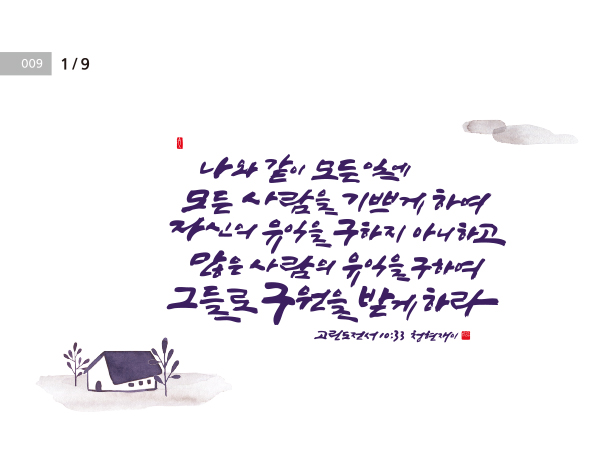 009 1 / 9
나와 같이 모든 일에
모든 사람을 기쁘게 하여
자신의 유익을 구하지 아니하고
많은 사람의 유익을 구하여
그들로 구원을 받게 하라
고린도전서 10:33 청현재이